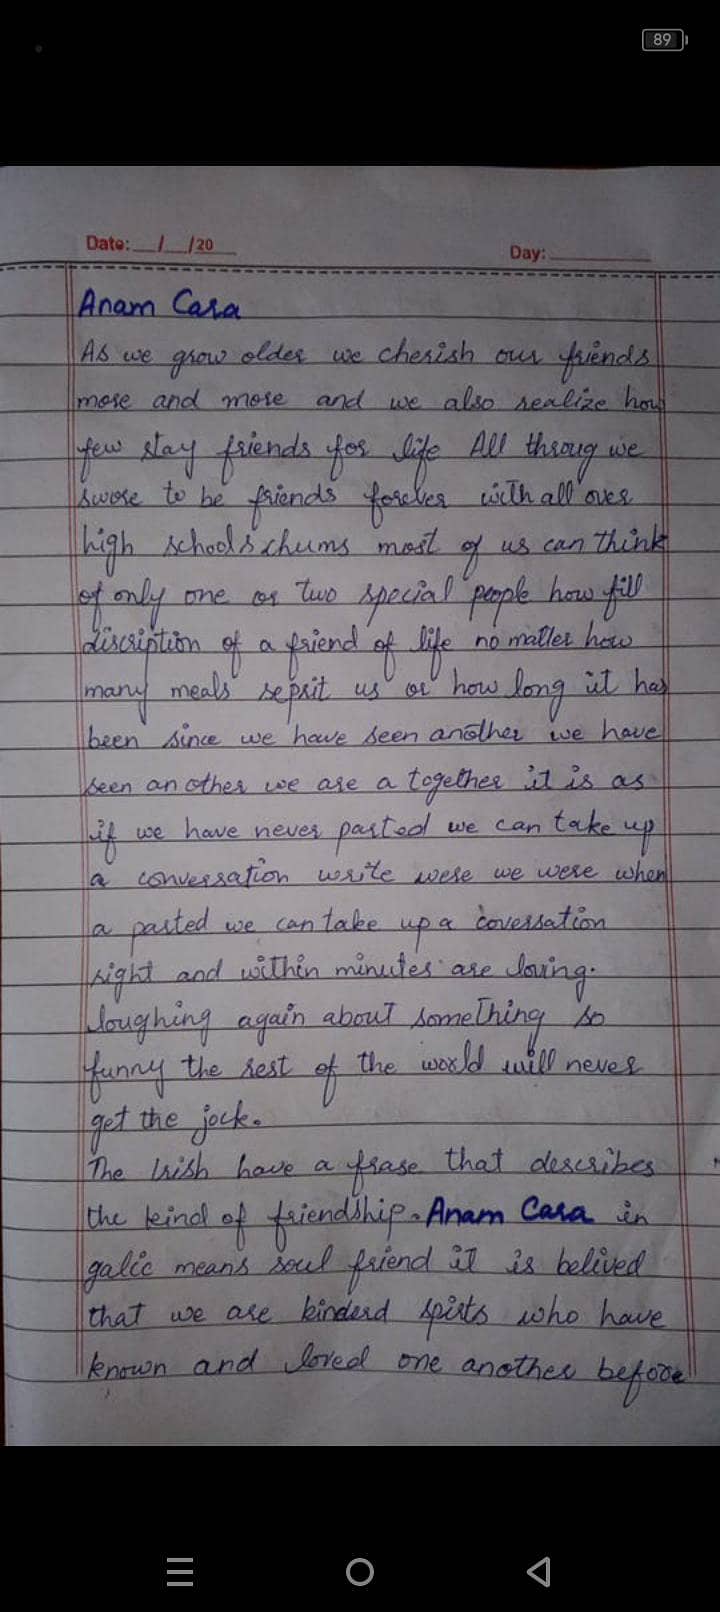 89
Date: __/__/20__
Day: ______
Anam Cara
As we grow older we cherish our friends
more and more and we also realize how
few stay friends for life All throug we
swore to be friends forever with all over
high schools chums most of us can think
of only one or two special people how fill
discription of a friend of life no matter how
many meals seprit us or how long it has
been since we have seen another we have
seen an other we are a together it is as
if we have never parted we can take up
a conversation write were we were when
a parted we can take up a coversation
right and within minutes are loving.
loughing again about something so
funny the rest of the world will never
get the jock.
The Irish have a frase that describes
the keind of friendship. Anam Cara in
galic means soul friend it is belived
that we are kinderd spirts who have
known and loved one another before